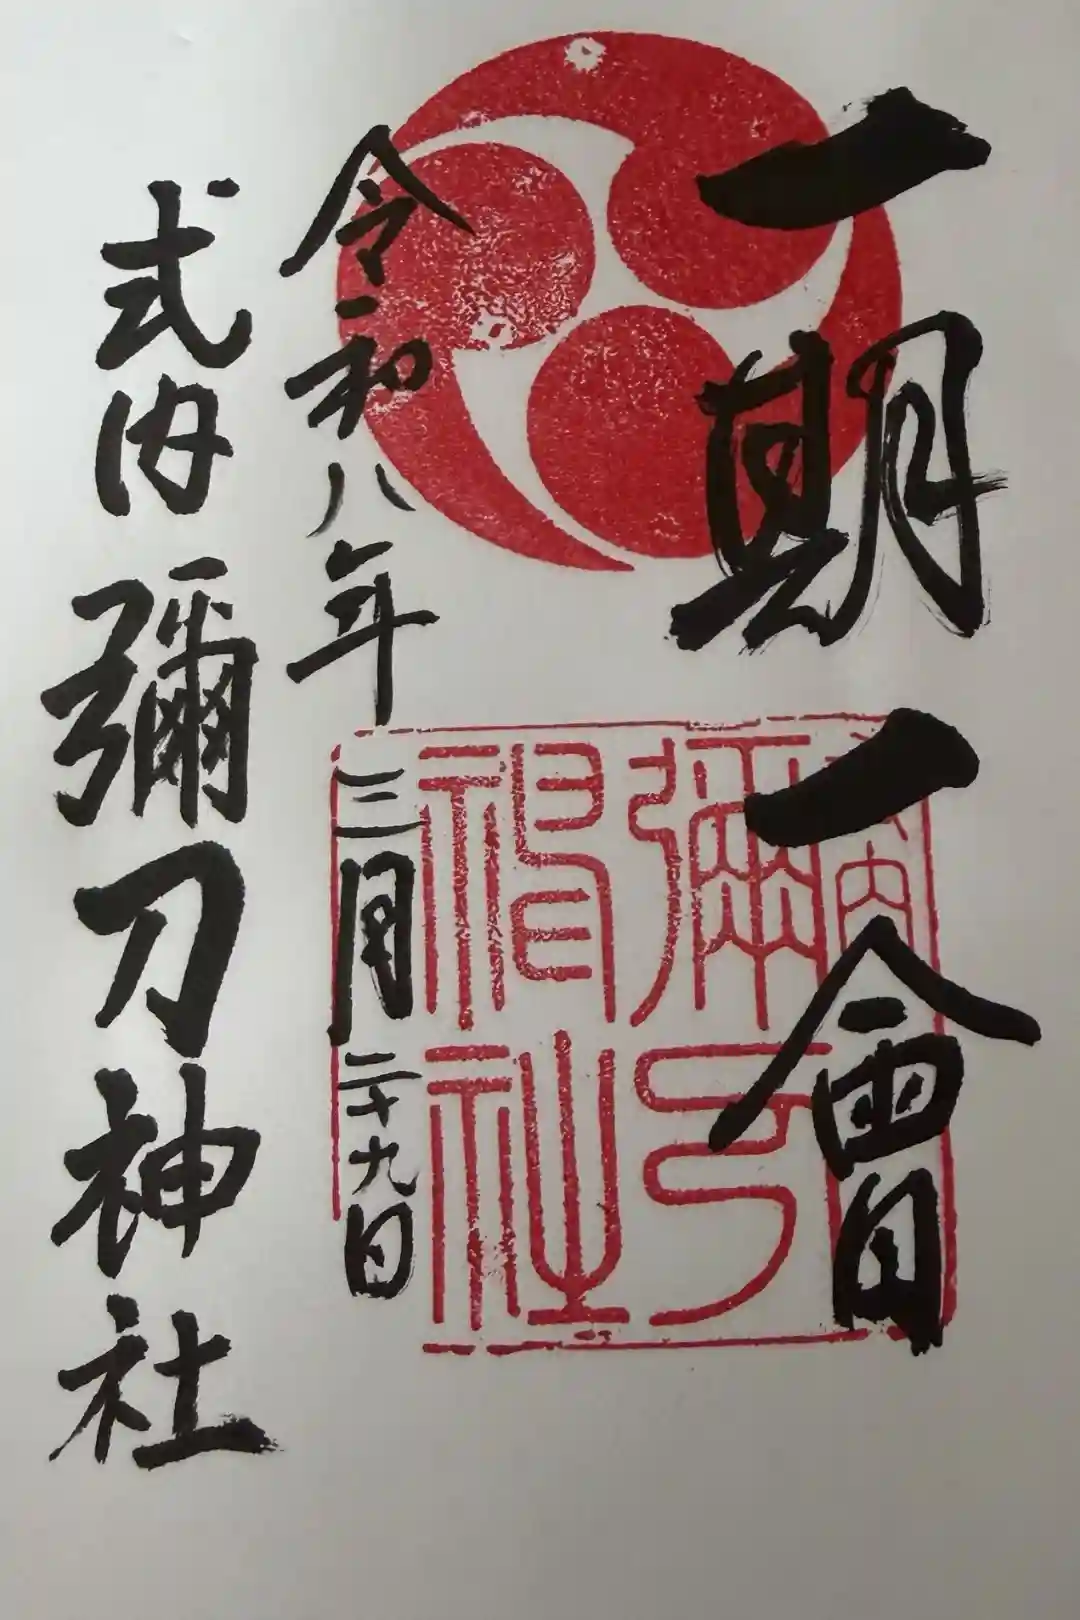 一期一會
令和八年三月二十九日
式内彌刀神社
式内
彌刀
神社